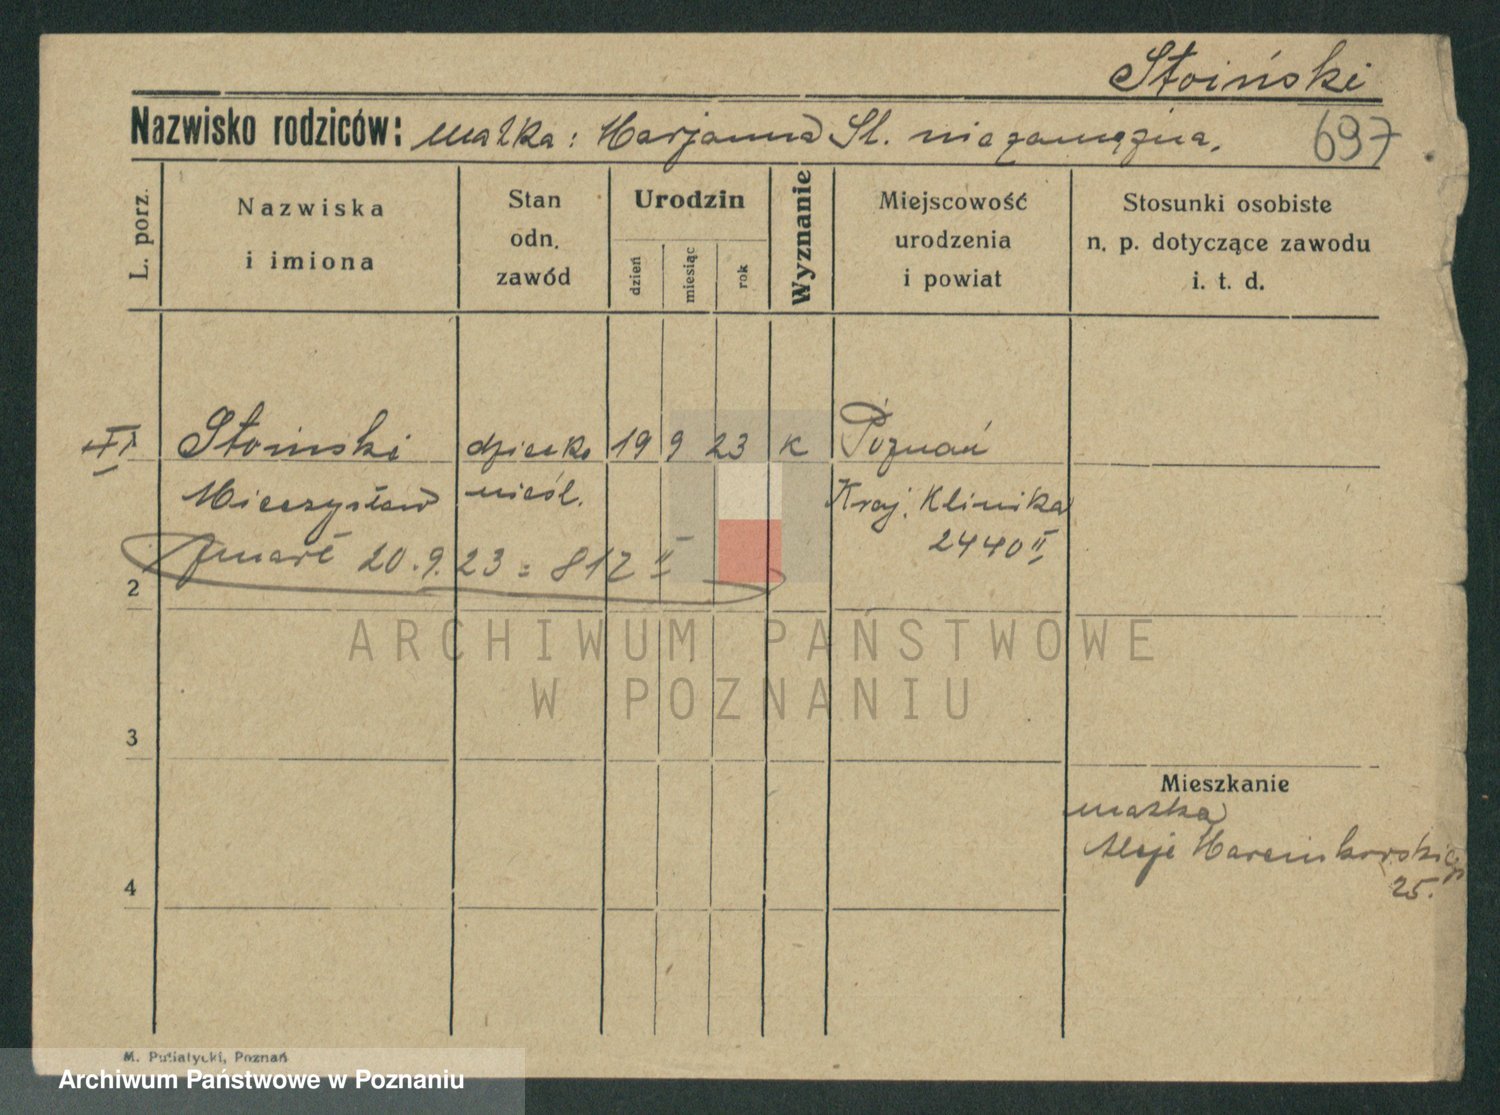 Stoiński
Nazwisko rodziców: matka: Marjanna St. niezamężna.
697
L. porz.
Nazwiska
i imiona
Stan
odn.
zawód
Urodzin
dzień
miesiąc
rok
Wyznanie
Miejscowość
urodzenia
i powiat
Stosunki osobiste
n. p. dotyczące zawodu
i. t. d.
Stoinski dziecko 19 9 23 k Poznań
Mieczysław nieśl. Kraj. Klinika
2440 II
zmarł 20.9.23 = 812 II
2
ARCHIWUM PAŃSTWOWE
W POZNANIU
3
Mieszkanie
matka
Aleje Marcinkowskiego
25.
4
M. Putiatycki, Poznań
Archiwum Państwowe w Poznaniu